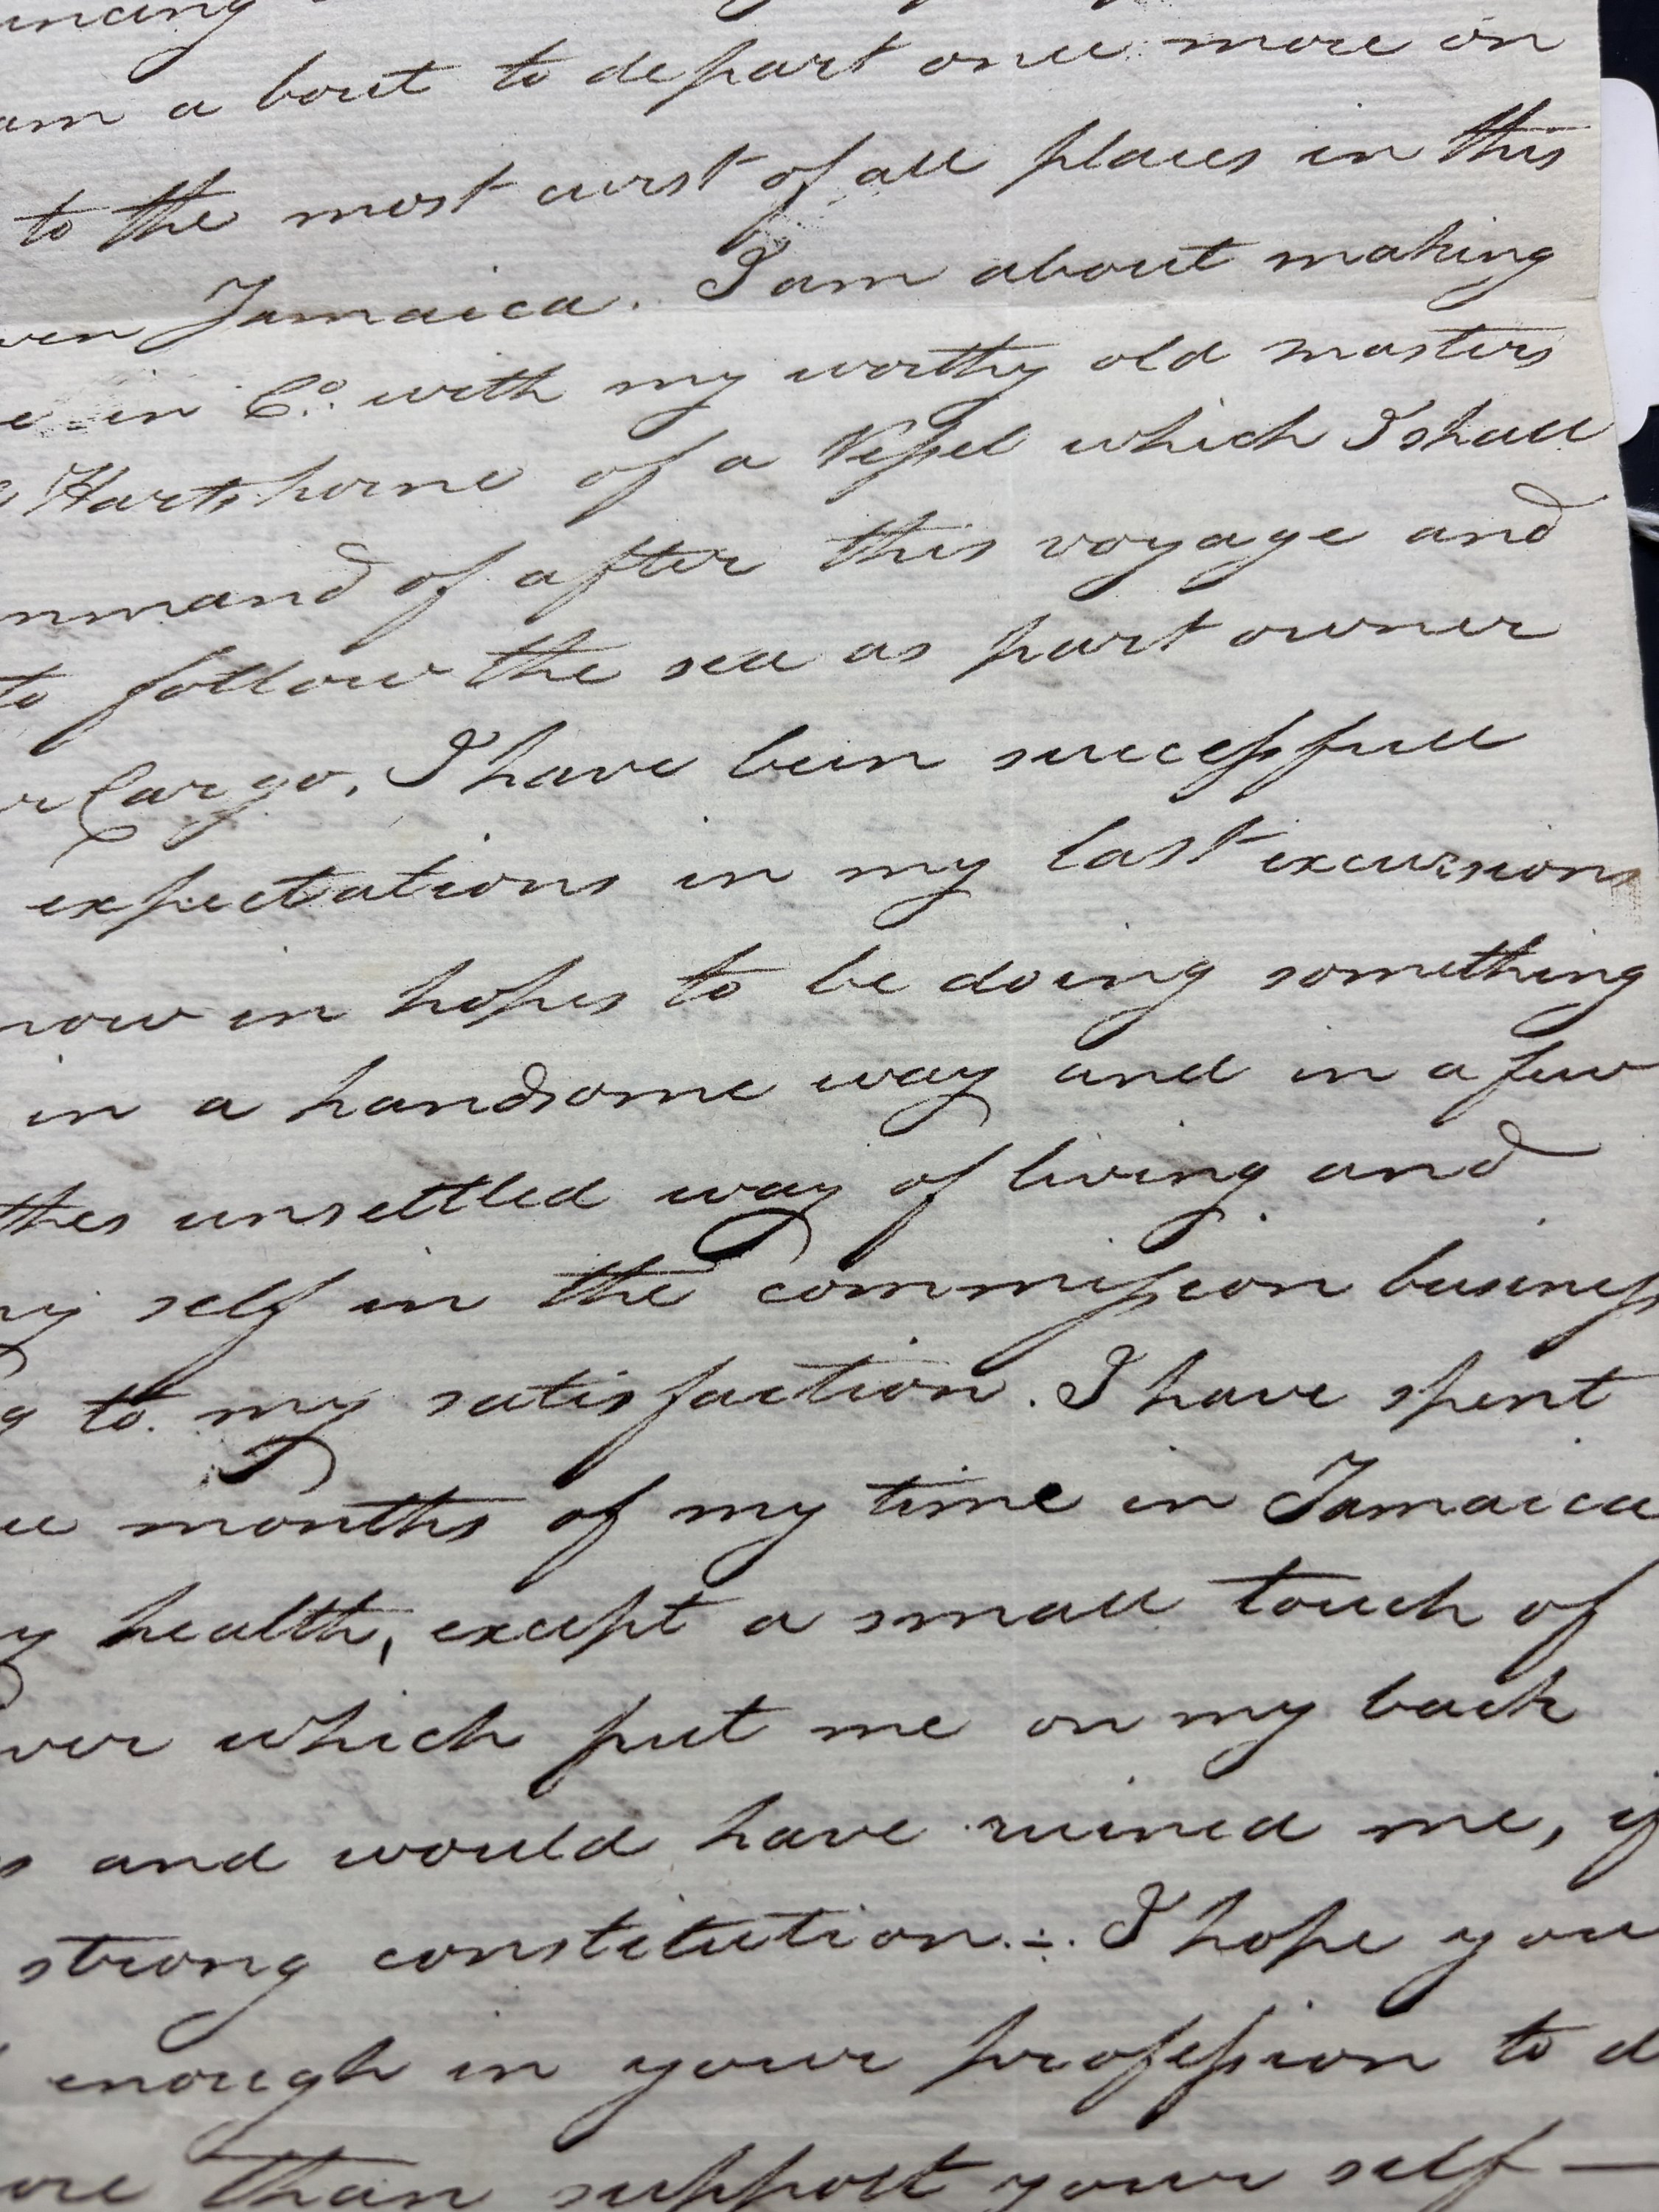 am a bout to depart once more on
to the most curst of all places in this
Jamaica. I am about making
in Co. with my worthy old masters
Hartshorne of a Vessel which I shall
mmand of after this voyage and
to follow the sea as part owner
r Cargo, I have been successfull
expectations in my last excursions
now in hopes to be doing something
in a handsome way and in a few
thes unsettled way of living and
self in the commission business
g to my satisfaction. I have spent
months of my time in Jamaica
y health, except a small touch of
ver which put me on my back
s and would have ruined me, if
strong constitution ÷ I hope you
enough in your profession to d
ore than support your self —